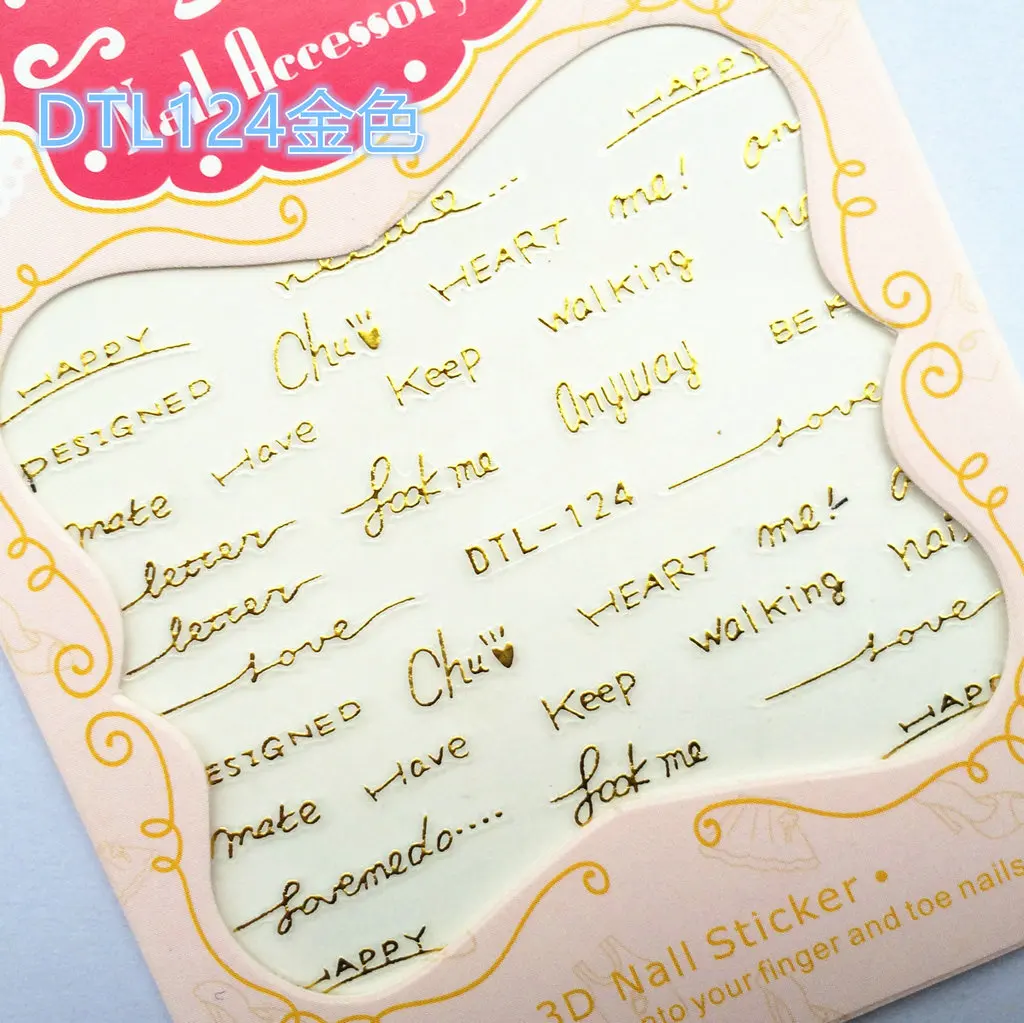 Nail Accessory
DTL124金色
HAPPY
HEART me!
HAPPY Chu walking
DESIGNED Keep BE
Have Anyway
mate Look me love
letter DTL-124
letter HEART me!
love walking nai
Chu love
ESIGNED Keep HAPP
Have Look me
mate
Lovemedo....
HAPPY
3D Nall Sticker •
nto your finger and toe nails